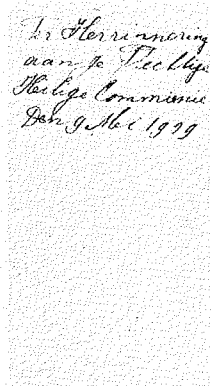 Ter Herinnering
aan je Plechtige
Heilige Communie
Den 9 Mei 1929